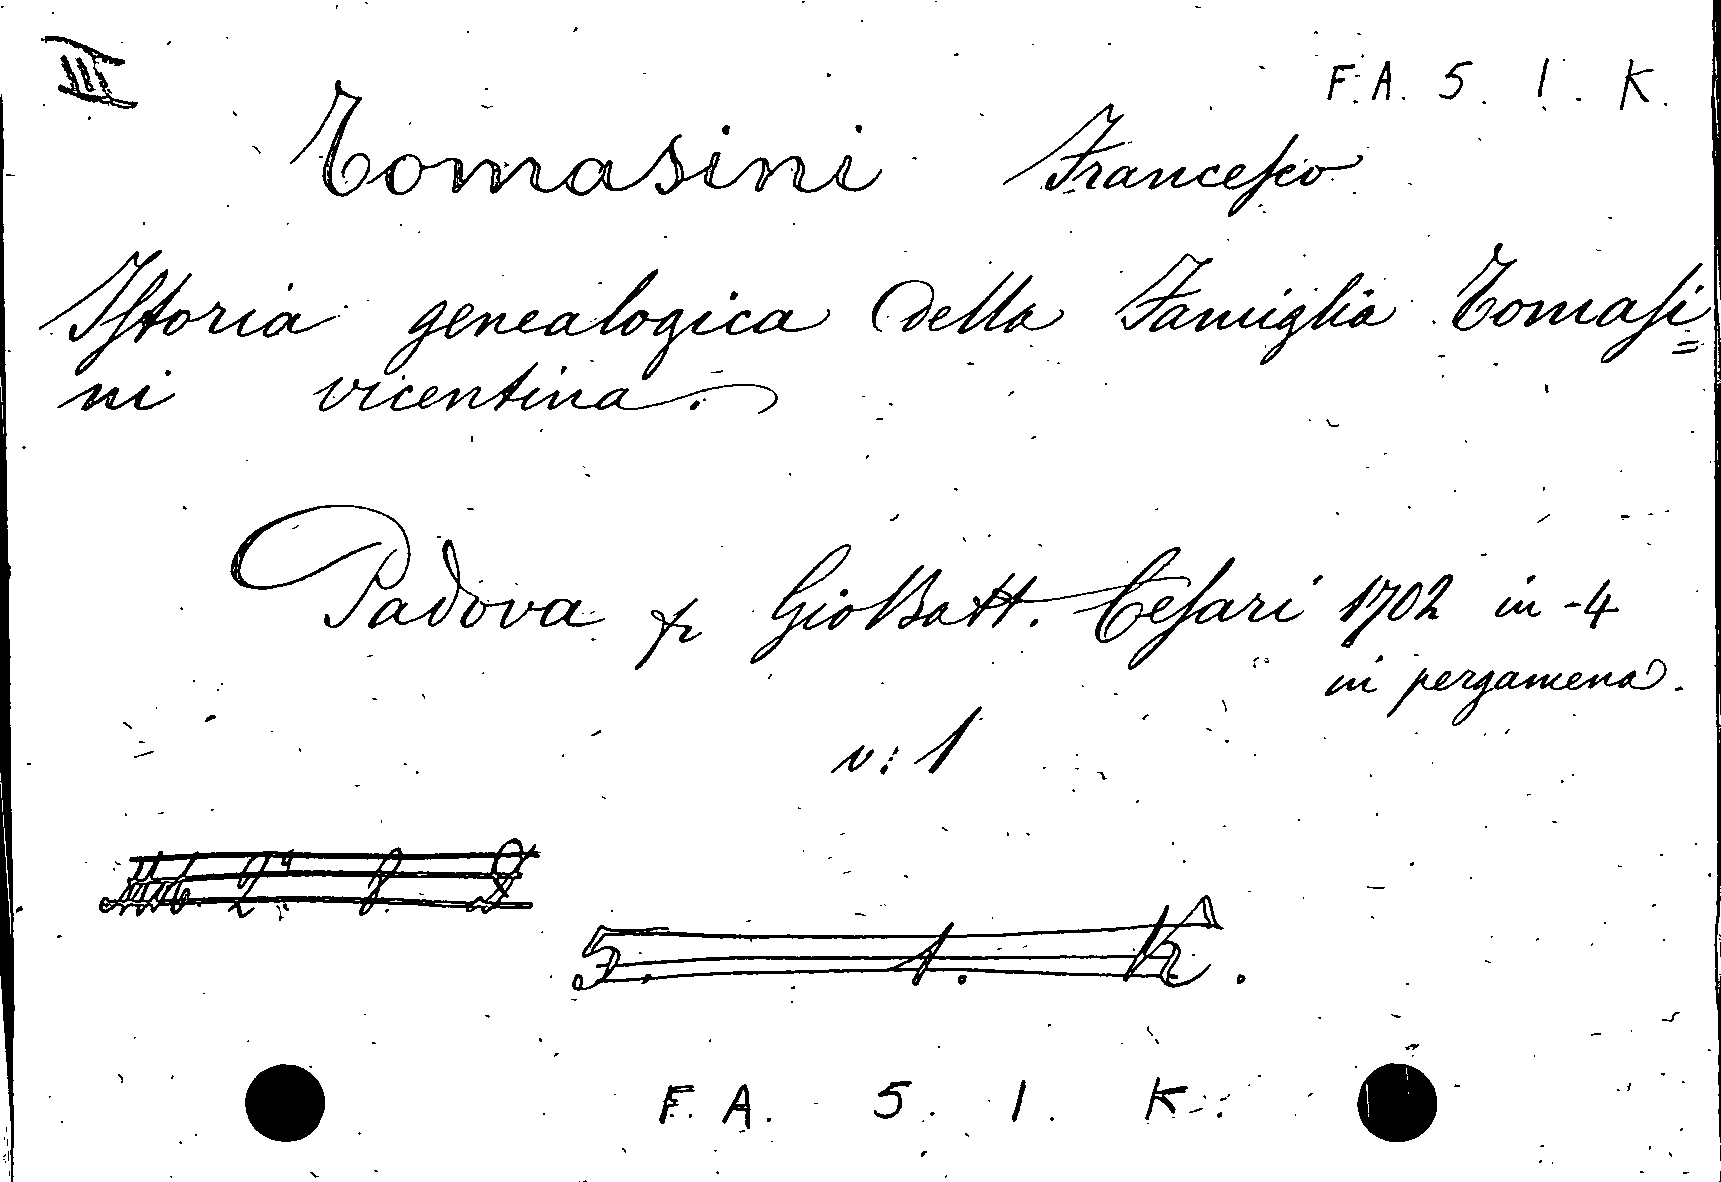 III
F. A. 5. 1. K.
Tomasini Francesco
Istoria genealogica della Famiglia Tomasi=
ni vicentina.
Padova fr GioBatt. Cesari 1702 in -4
in pergamena.
v: 1
5. 1. K.
F. A. 5. 1. K.